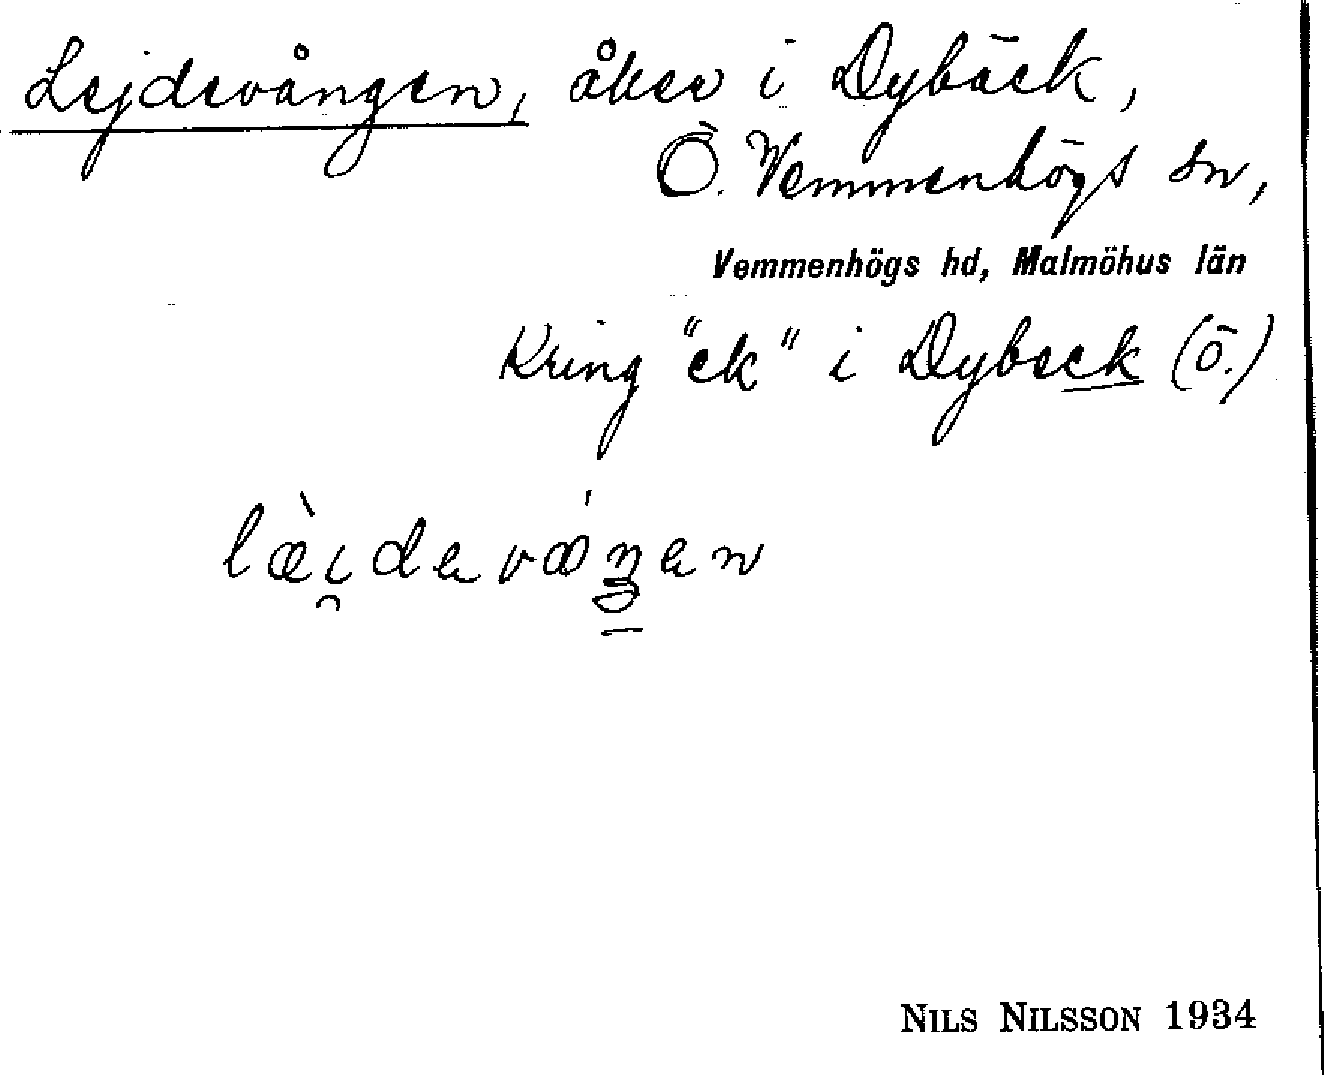 Lejdevången, åker i Dybäck,
Ö. Vemmenhögs sn,
Vemmenhögs hd, Malmöhus län
Kring "ck" i Dybeck (ö.)
læ̀i̯deváŋen
NILS NILSSON 1934